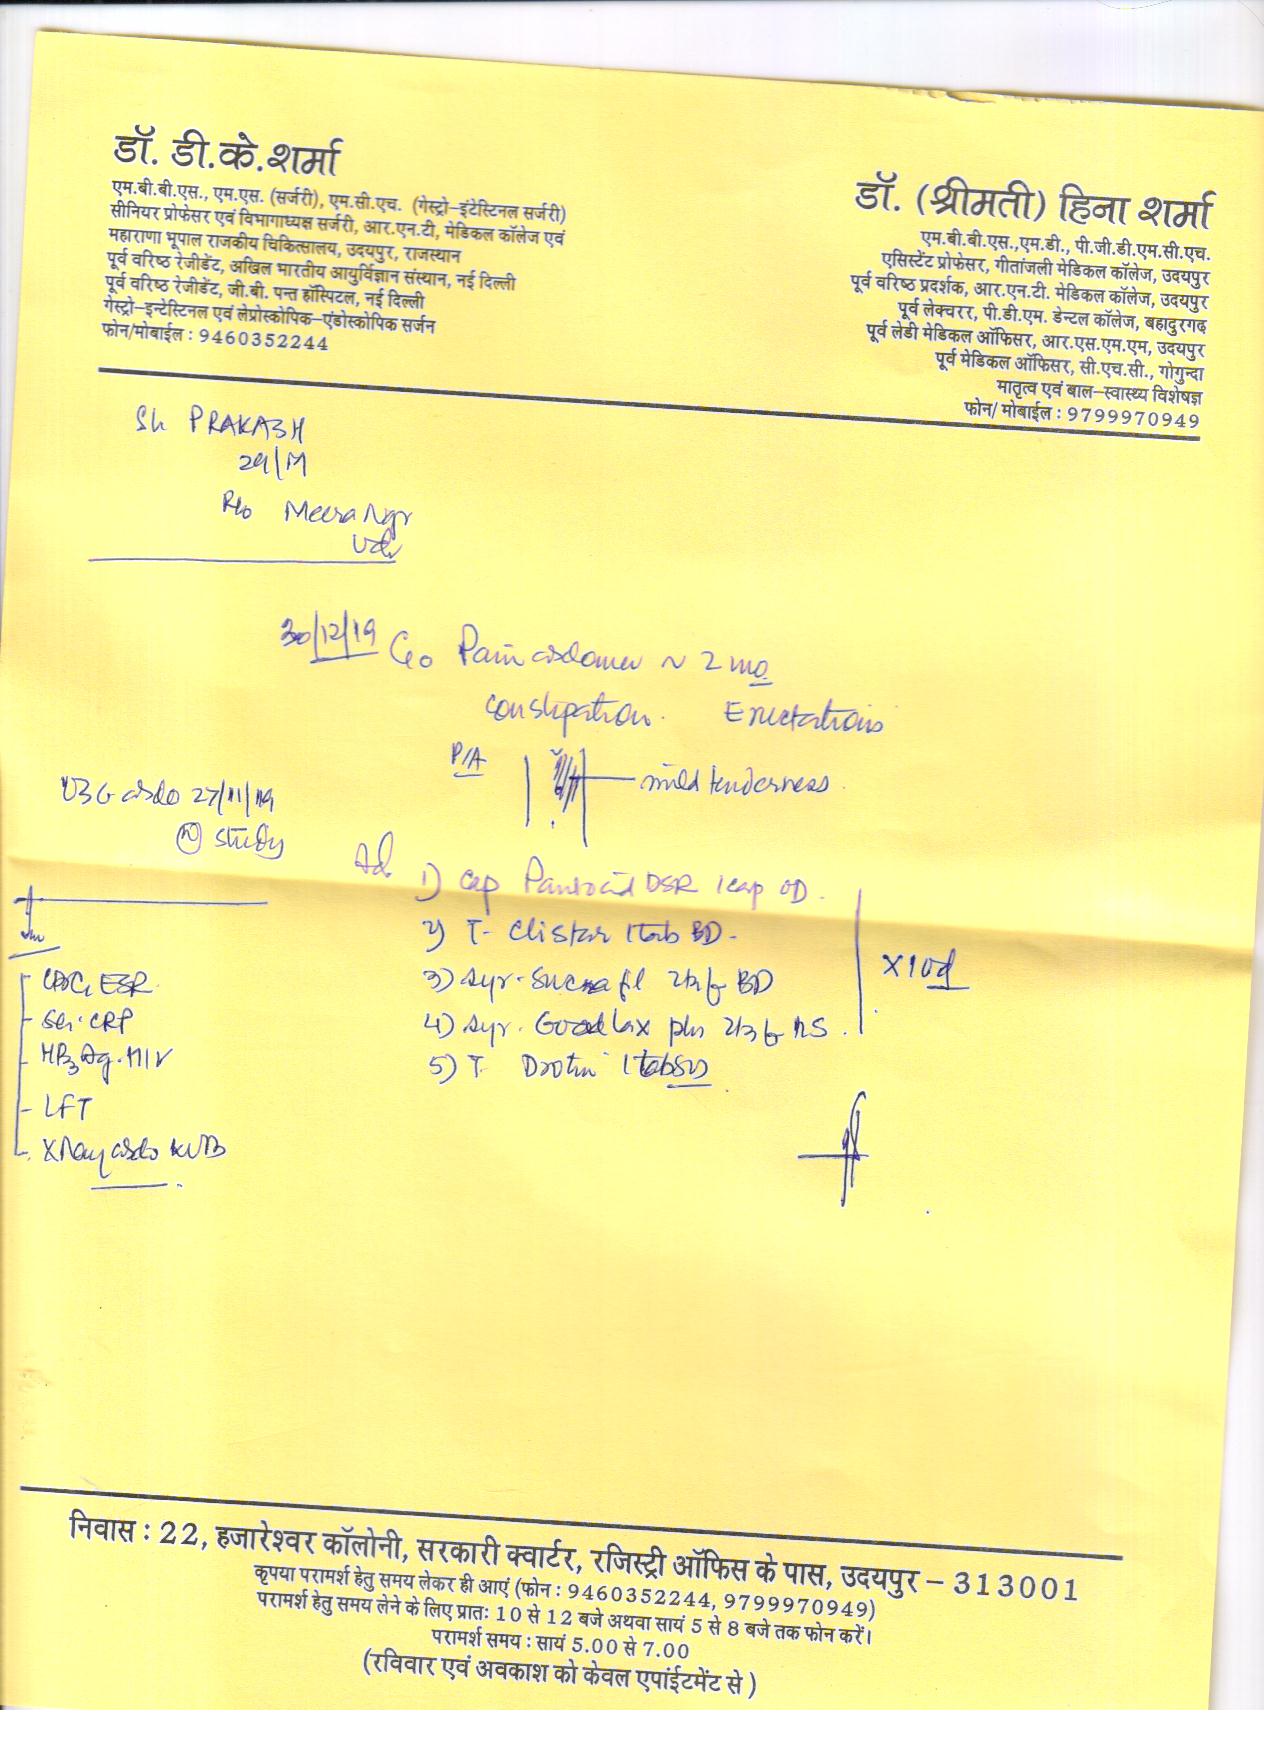 डॉ. डी.के.शर्मा
एम.बी.बी.एस., एम.एस. (सर्जरी), एम.सी.एच. (गेस्ट्रो-इंटेस्टिनल सर्जरी)
सीनियर प्रोफेसर एवं विभागाध्यक्ष सर्जरी, आर.एन.टी, मेडिकल कॉलेज एवं
महाराणा भूपाल राजकीय चिकित्सालय, उदयपुर, राजस्थान
पूर्व वरिष्ठ रेजीडेंट, अखिल भारतीय आयुर्विज्ञान संस्थान, नई दिल्ली
पूर्व वरिष्ठ रेजीडेंट, जी.बी. पन्त हॉस्पिटल, नई दिल्ली
गेस्ट्रो-इन्टेस्टिनल एवं लेप्रोस्कोपिक-एंडोस्कोपिक सर्जन
फोन/मोबाईल : 9460352244
डॉ. (श्रीमती) हिना शर्मा
एम.बी.बी.एस.,एम.डी., पी.जी.डी.एम.सी.एच.
एसिस्टेंट प्रोफेसर, गीतांजली मेडिकल कॉलेज, उदयपुर
पूर्व वरिष्ठ प्रदर्शक, आर.एन.टी. मेडिकल कॉलेज, उदयपुर
पूर्व लेक्चरर, पी.डी.एम. डेन्टल कॉलेज, बहादुरगढ़
पूर्व लेडी मेडिकल ऑफिसर, आर.एस.एम.एम, उदयपुर
पूर्व मेडिकल ऑफिसर, सी.एच.सी., गोगुन्दा
मातृत्व एवं बाल-स्वास्थ्य विशेषज्ञ
फोन/ मोबाईल : 9799970949
Sh PRAKASH
29/M
R/o Meera Ngr
Udr
30/12/19 C/o Pain abdomen ~ 2 mo
Constipation. Eructations
P/A mild tenderness
USG abdo 27/11/19
(N) study
Ad.
1) Cap Pantocid DSR 1cap OD.
2) T- Clistar 1tab BD.
3) Syr. Sucrafil 2tsf BD
4) Syr. Goodlax plus 2tsf HS.
5) T. Drotin 1tab SOS
x10d
CBC, ESR
Ser. CRP
HBsAg. HIV
LFT
XRay abdo KUB
निवास : 22, हजारेश्वर कॉलोनी, सरकारी क्वार्टर, रजिस्ट्री ऑफिस के पास, उदयपुर – 313001
कृपया परामर्श हेतु समय लेकर ही आएं (फोन : 9460352244, 9799970949)
परामर्श हेतु समय लेने के लिए प्रातः 10 से 12 बजे अथवा सायं 5 से 8 बजे तक फोन करें।
परामर्श समय : सायं 5.00 से 7.00
(रविवार एवं अवकाश को केवल एपांईटमेंट से )